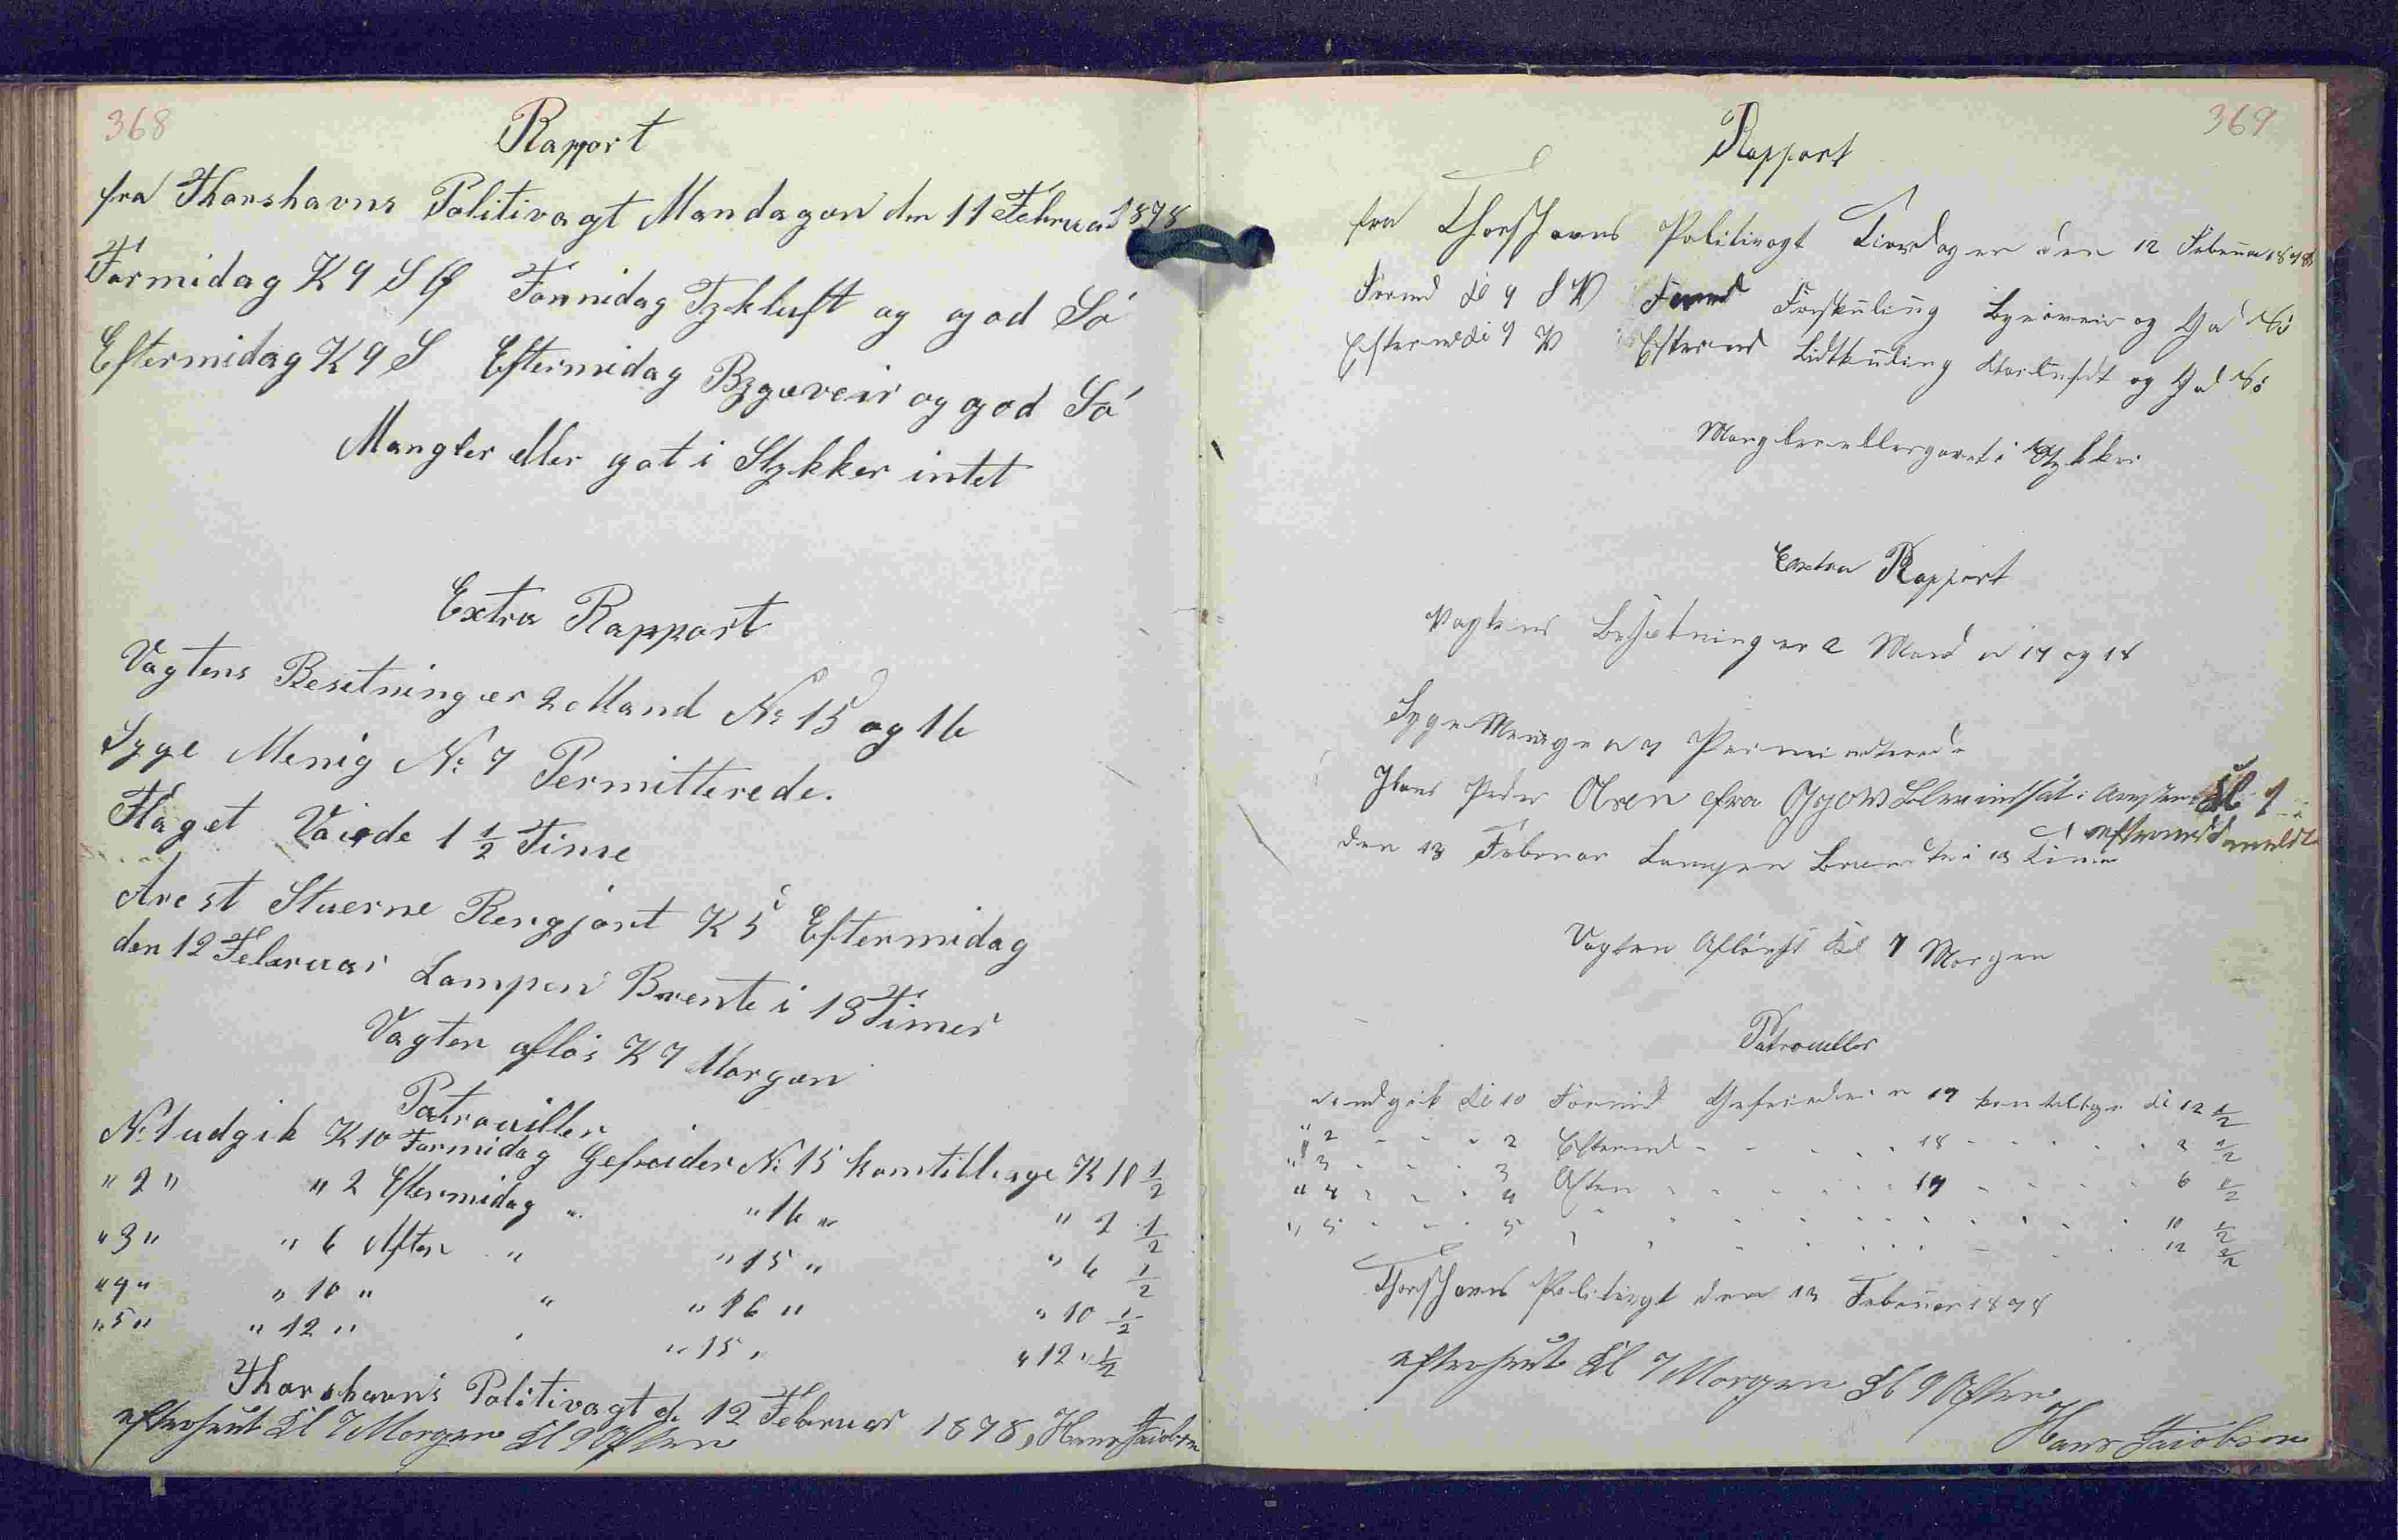 368
Rapport
fra Thorshavns Politivagt Mandagen den 11 Februar 1878
Formidag K 9 S Ø Formidag Tykluft og god Sö
Eftermidag K 9 S Eftermidag Bygeveir og god Sö
Mangler eller got i Stykker intet
Extra Rapport
Vagtens Besetning er 2 Mand No 15 og 16
Syge Menig No 7 Permitterede.
Flaget Vaiede 1 1/2 Time
Arest Stuerne Rengjort K 5 Eftermidag
den 12 Februar Lampen Brente i 13 Timer
Vagten aflös K 7 Morgen
Patrouiller
No 1 udgik K 10 Formidag Gefreider No 15 kom tilbage K 10 1/2
" 2 " " 2 Eftermidag " " 16 " " 2 1/2
" 3 " " 6 Aften " " 15 " " 6 1/2
" 4 " " 10 " " " 16 " " 10 1/2
" 5 " " 12 " " 15 " " 12 " 1/2
Thorshavns Politivagt d. 12 Februar 1878, Hans Jacobsen
efterseet Kl 7 Morgen Kl 9 Aften
369
Rapport
fra Thorshavns Politivagt Tirsdagen den 12 Februar 1878
Formd Kl 9 S V Formd Friskuling Bygeveir og God Sö
Eftermd Kl 9 V Eftermd Lidtkuling Klarluft og God Sö
Mangler eller gaaet i Stykker
Extra Rapport
Vagtens Besætning er 2 Mand N 17 og 18
Syge Menige N 7 Permitterede
Hans Peder Olsen fra Gjow Blev indsat i Aresten Kl 1
eftermd anmeldt
den 13 Februar Lampen Brændte i 13 Timer
Vagten Aflöst Kl 7 Morgen
Patrouller
N 1 udgik Kl 10 Formid Gefreider N 17 kom tilbage Kl 12 1/2
" 2 - - - 2 Eftermd - - - 18 - - - 2 1/2
" 3 - - - 3 Aften - - - 17 - - - 6 1/2
" 4 - - - 4 - - - 10 1/2
" 5 - - - 5 - - - 12 1/2
Thorshavns Politivagt den 13 Februar 1878
efterseet Kl 7 Morgen Kl 9 Aften
Hans Jacobsen